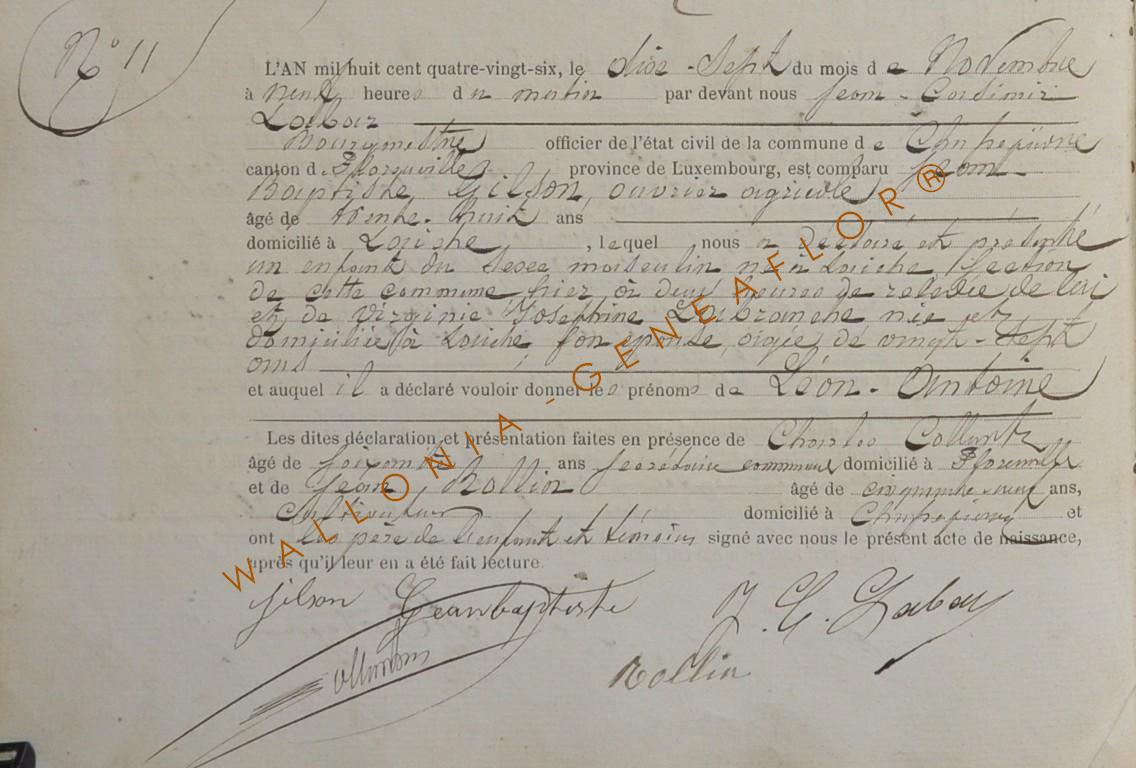 N° 11
L'AN mil huit cent quatre-vingt-six, le dix-Sept du mois de Novembre
à neuf heures du matin par devant nous Jean-Casimir
Labar
Bourgmestre officier de l'état civil de la commune de Chassepierre
canton de Florenville province de Luxembourg, est comparu Jean-
Baptiste Gilson, ouvrier agricole
âgé de trente-huit ans
domicilié à Laiche, lequel nous a déclaré et présenté
un enfant du sexe masculin né à Laiche, Section
de cette commune, hier, à deux heures de relevée de lui
et de Virginie Joséphine Labranche née et
domiciliée à Laiche son épouse, âgée de vingt-Sept
ans
et auquel il a déclaré vouloir donner les prénoms de Léon-Antoine
Les dites déclaration et présentation faites en présence de Charles
âgé de soixante ans Secrétaire communal domicilié à Florenville
et de Jean Rollin âgé de cinquante-neuf ans,
cultivateur domicilié à Chassepierre et
ont les père de l'enfant et témoins signé avec nous le présent acte de naissance,
après qu'il leur en a été fait lecture.
Gilson Jeanbaptiste J. C. Labar
Rollin
WALLONIA-GENEAFLOR®